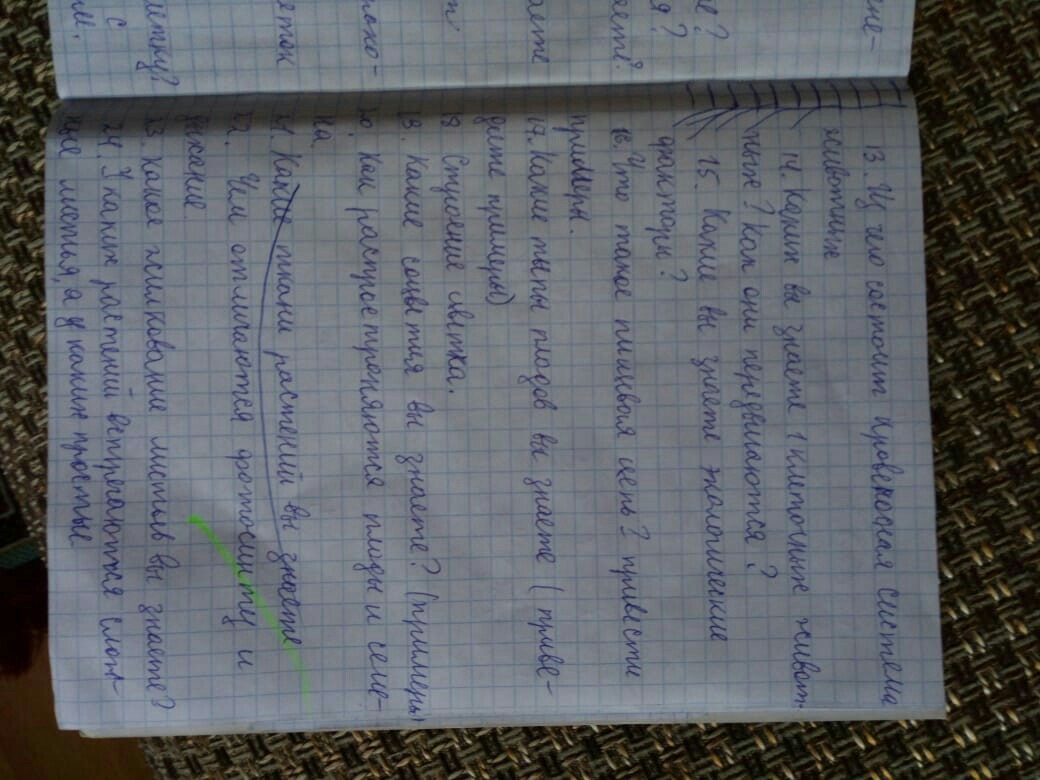 13. Из чего состоит кровеносная система
животных
14. Каких вы знаете 1 клеточных живот-
ных? Как они передвигаются?
15. Какие вы знаете экологические
факторы?
16. Что такое пищевая цепь? привести
примеры.
17. Какие типы плодов вы знаете (приве-
дите примеры)
18 Строение цветка.
19. Какие соцветия вы знаете? (примеры)
20. Как распространяются плоды и семе-
на.
21. Какие ткани растений вы знаете
22. Чем отличаются фотосинтез и
дыхание
23. Какое жилкование листьев вы знаете?
24. У каких растений встречаются слож-
ные листья, а у каких простые
ене-
е?
я?
аете?
аете
т
око-
еток
летку?
с